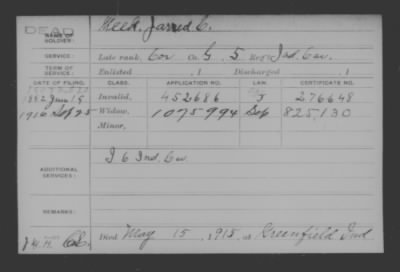 DEAD
NAME OF SOLDIER:
Meek, Jarred C.
SERVICE:
Late rank, Cor Co. G, 5 Reg't Ind Cav.
TERM OF SERVICE:
Enlisted , 1 Discharged , 1
DATE OF FILING. CLASS. APPLICATION NO. CERTIFICATE NO.
1882 Jun 15 Invalid, 452686 276648
1916 Sep 25 Widow, 1075994 825,130
Minor,
ADDITIONAL SERVICES:
I 6 Ind. Cav.
REMARKS:
Died May 15, 1915, at Greenfield Ind